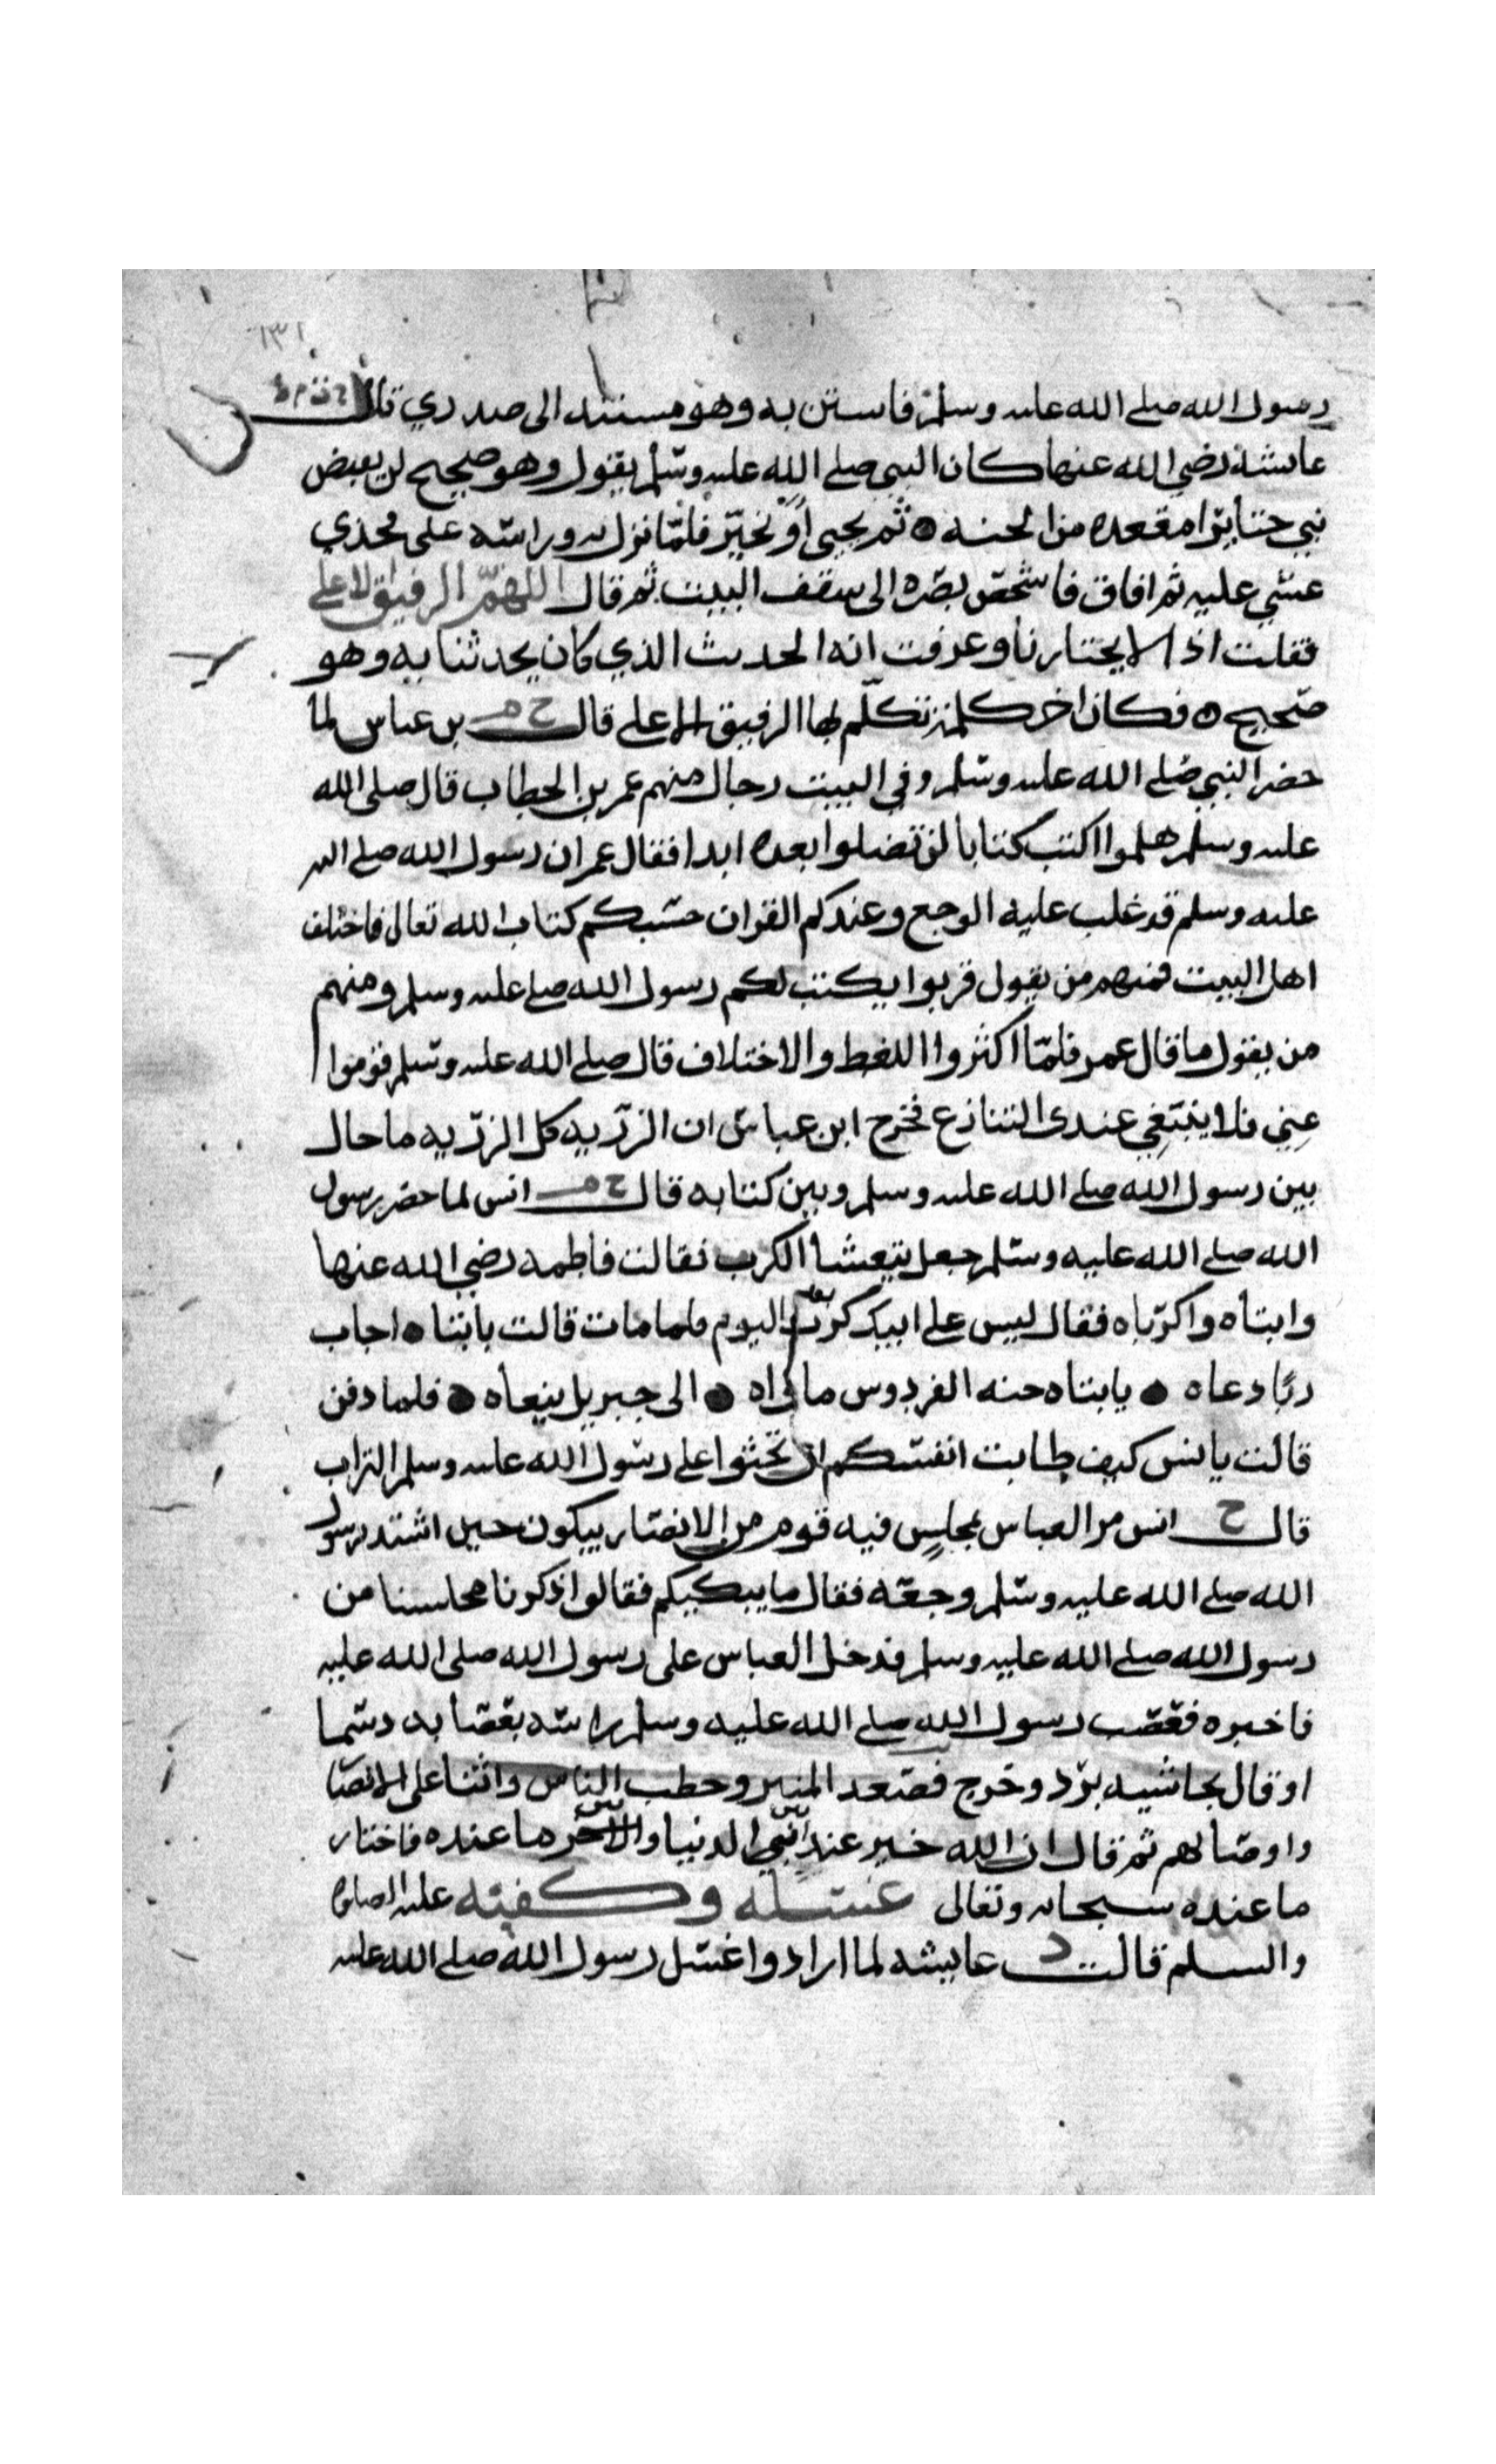 ١٣١
رسول الله صلے الله علىه وسلم فاستن به وهو مستند الى صدري قال
عائشة رضي الله عنها كان النبي صلے الله علىه وسلم يقول وهو صحيح لن يقبض
نبي حتى يرا مقعده من الجنه ثم يحيى او يخير فلما نزل به وراسه على فخذي
غشي عليه ثم افاق فاشخص بصره الى سقف البيت ثم قال اللهم الرفيق الاعلى
فقلت اذا لا يختارنا وعرفت انه الحديث الذي كان يحدثنا به وهو
صحيح فكان اخر كلمة تكلم بها الرفيق الاعلى قال خ م بن عباس لما
حضر النبي صلے الله علىه وسلم وفي البيت رجال منهم عمر بن الخطاب قال صلى الله
علىه وسلم هلموا اكتب كتابا لن تضلوا بعده ابدا فقال عمر ان رسول الله صلے الله
علىه وسلم قد غلب عليه الوجع وعندكم القران حسبكم كتاب الله تعالى فاختلف
اهل البيت فمنهم من يقول قربوا يكتب لكم رسول الله صلے علىه وسلم ومنهم
من يقول ما قال عمر فلما اكثروا اللغط والاختلاف قال صلے الله علىه وسلم قوموا
عني فلا ينبغي عندى التنازع فخرج ابن عباس ان الرزيه كل الرزيه ما حال
بين رسول الله صلے الله علىه وسلم وبين كتابه قال خ م انس لما حضر رسول
الله صلے الله عليه وسلم جعل يتغشا الكرب فقالت فاطمه رضي الله عنها
وابتاه واكرباه فقال ليس على ابيك كرب بعد اليوم فلما مات قالت يابتاه اجاب
ربا دعاه يابتاه جنه الفردوس ماواه الى جبريل ينعاه فلما دفن
قالت يا انس كيف طابت انفسكم ان تحثوا على رسول الله علىه وسلم التراب
قال خ انس مر العباس بمجلس فيه قوم من الانصار يبكون حين اشتد برسول
الله صلے الله عليه وسلم وجعه فقال ما يبكيكم فقالوا ذكرنا مجلسنا من
رسول الله صلے الله عليه وسلم فدخل العباس على رسول الله صلى الله عليه
فاخبره فعصب رسول الله صلے الله عليه وسلم راسه بعصابه دسما
او قال بحاشيه برد وخرج فصعد المنبر وخطب الناس واثنا على الانصا
واوصا لهم ثم قال ان الله خير عبدا بين الدنيا وبين ما عنده فاختار
ما عنده سبحانه وتعالى غسله وكفنه عليه الصلوة
والسلم قالت د عايشه لما ارادوا غسل رسول الله صلے الله علىه